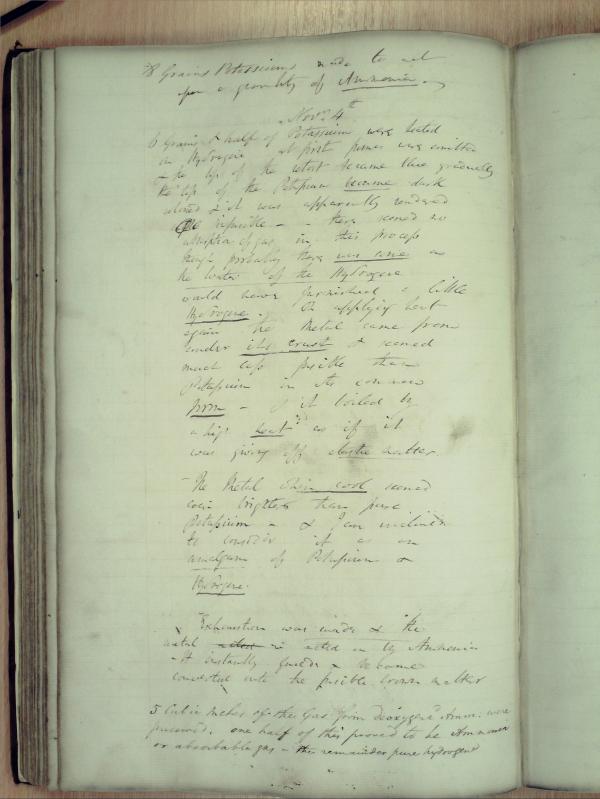 8 Grains Potassium made to act
upon a quantity of Ammonia.
Novr. 4th
6 Grains & half of Potassium were heated
in Hydrogene at first fumes were emitted
& the top of the retort became blue gradually
the top of the Potassium became dark
coloured & it was apparently rendered
infusible - there seemed no
absorption of gas in this process
though probably there was some as
the water of the Hydrogene
would have furnished a little
Hydrogene. On applying heat
again the Metal came from
under its crust & seemed
much less fusible than
Potassium in its common
form - & it boiled by
a high heat as if it
was giving off elastic matter.
- The Metal when cool seemed
even brighter than pure
Potassium - & I am inclined
to consider it as an
amalgam of Potassium &
Hydrogene.
Exhaustion was made & the
metal acted on by Ammonia
- It instantly fused & became
converted into the fusible brown matter
5 Cubic Inches of the Gas from Deoxygend Amm: were
procured. one half of this proved to be Ammonia
or absorbable gas - the remainder pure hydrogene